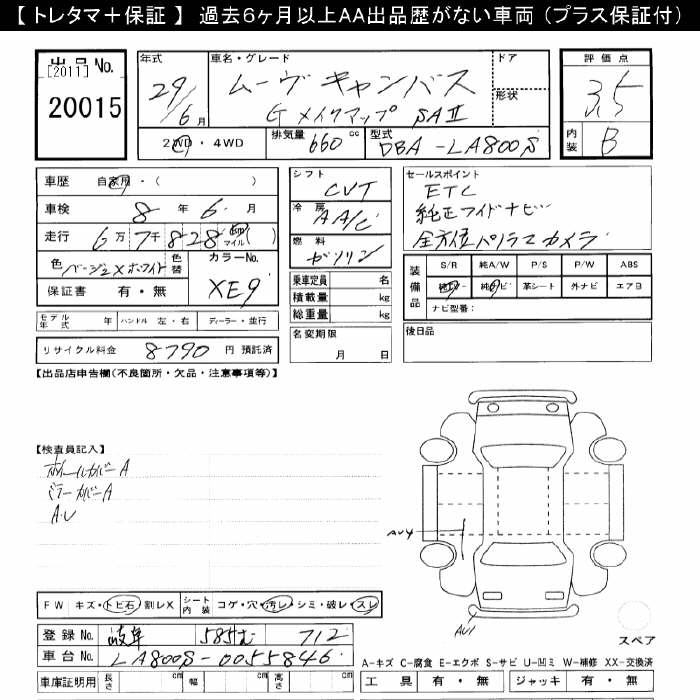 【 トレタマ＋保証 】 過去6ヶ月以上AA出品歴がない車両（プラス保証付）
出品 No.
[2011]
20015
年式
29/6月
車名・グレード
ムーヴ キャンバス
G メイクアップ SAⅡ
ドア
形状
2WD・4WD
排気量 660 cc
型式 DBA-LA800S
評価点
3.5
内装 B
車歴 自家用・( )
車検 8年 6月
走行 6万7千828 km マイル ( )
色 ベージュ×ホワイト 色替
カラーNo. XE9
保証書 有・無
シフト CVT
冷房 AA/C
燃料 ガソリン
乗車定員 名
積載量 kg
総重量 kg
セールスポイント
ETC
純正ワイドナビ
全方位パノラマカメラ
装備品
S/R 純A/W P/S P/W ABS
純ナビ 革シート 外ナビ エアB
ナビ型番：
モデル年式 年 ハンドル 左・右 ディーラー・並行
リサイクル料金 8790 円 預託済
名変期限
月 日
後日品
【出品店申告欄(不良箇所・欠品・注意事項等)】
【検査員記入】
ホイールカバーA
ミラーカバーA
A.U
AU4
AU1
スペア
FW キズ・トビ石・割レX
シート内装 コゲ・穴・汚レ・シミ・破レ・スレ
登録 No. 岐阜 585 む 712
車台 No. LA800S-0055846
車庫証明用 長さ cm 幅 cm 高さ cm
A-キズ C-腐食 E-エクボ S-サビ U-凹ミ W-補修 XX-交換済
工具 有・無 ジャッキ 有・無